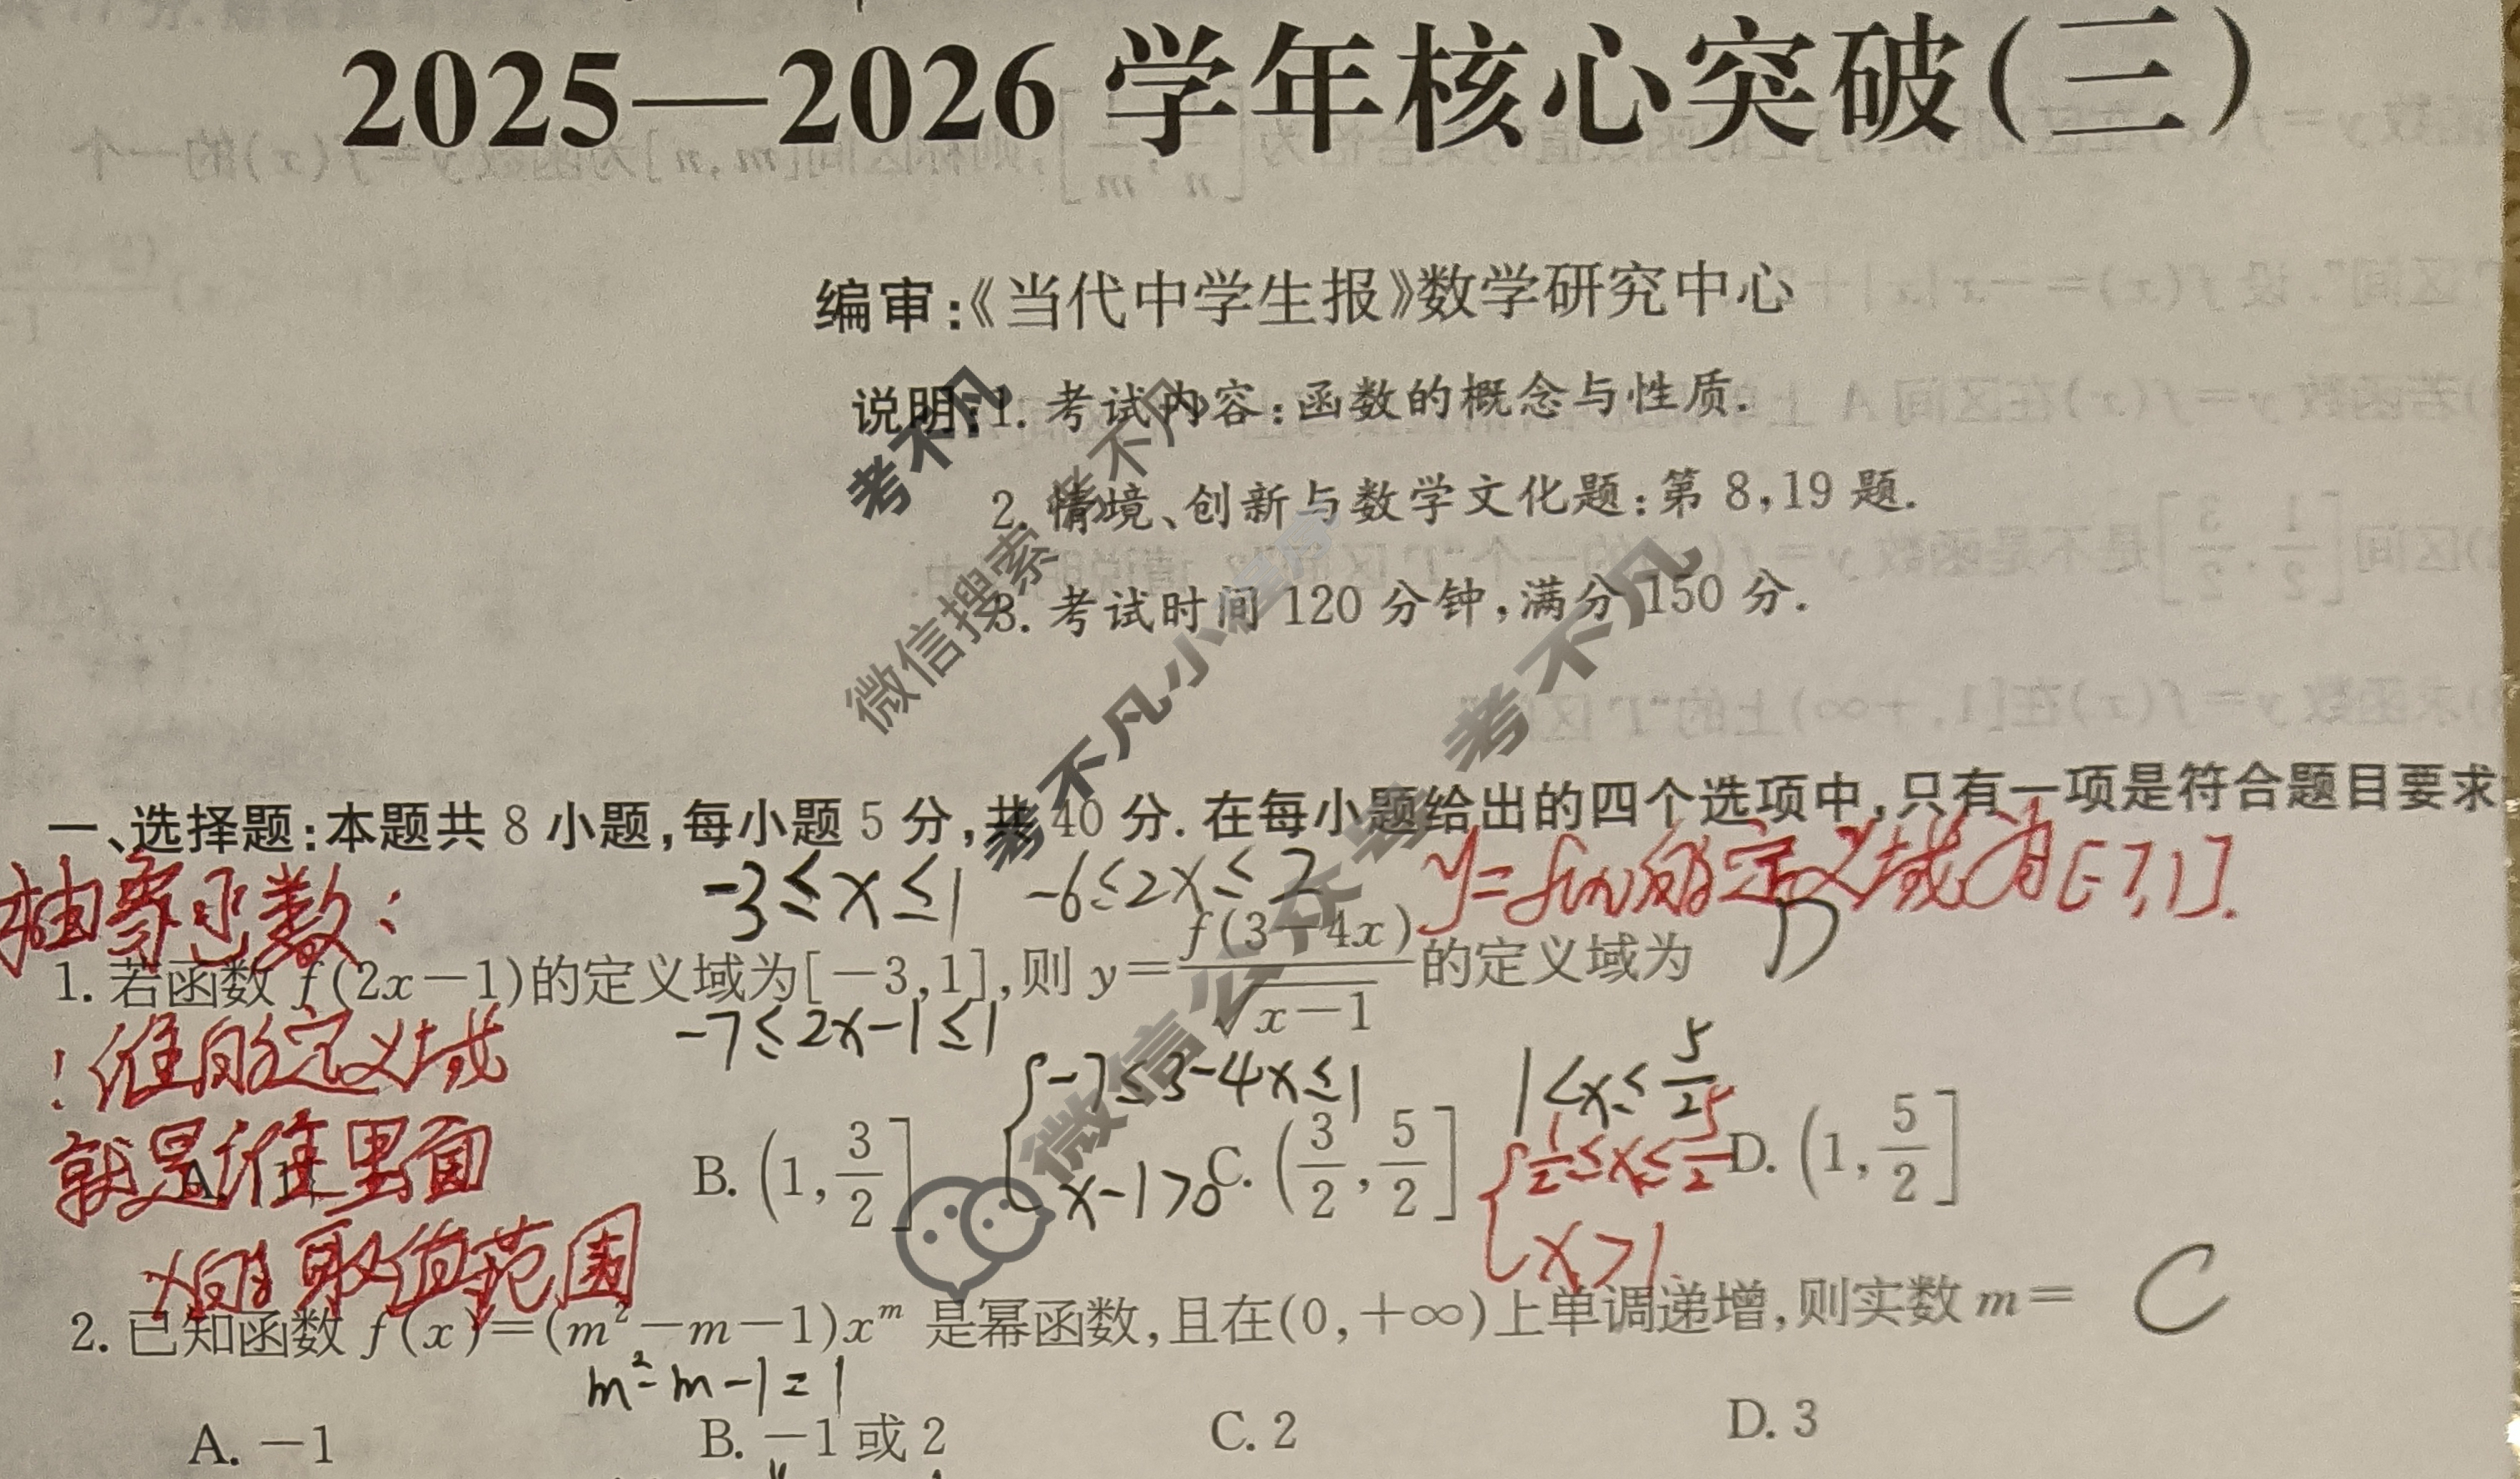 2025—2026 学年核心突破(三)
编审:《当代中学生报》数学研究中心
说明:1. 考试内容:函数的概念与性质.
2. 情境、创新与数学文化题:第 8,19 题.
3. 考试时间 120 分钟,满分 150 分.
考不凡
考不凡
微信搜索
考不凡小程序
微信公众号 考不凡
一、选择题:本题共 8 小题,每小题 5 分,共 40 分. 在每小题给出的四个选项中,只有一项是符合题目要求
抽象函数:
-3≤x≤1 -6≤2x≤2 y=f(x)的定义域为[-7,1].
1. 若函数 f(2x-1)的定义域为[-3,1],则 y=f(3-4x)/√(x-1) 的定义域为 D
! 谁的定义域
就是谁里面
x的取值范围
-7≤2x-1≤1
{-7≤3-4x≤1
x-1>0
1<x≤5/2
{1/2≤x≤5/2
x>1
B. (1,3/2] C. (3/2,5/2] D. (1,5/2]
2. 已知函数 f(x)=(m²-m-1)xᵐ 是幂函数,且在(0,+∞)上单调递增,则实数 m= C
m²-m-1=1
A. -1 B. -1 或 2 C. 2 D. 3